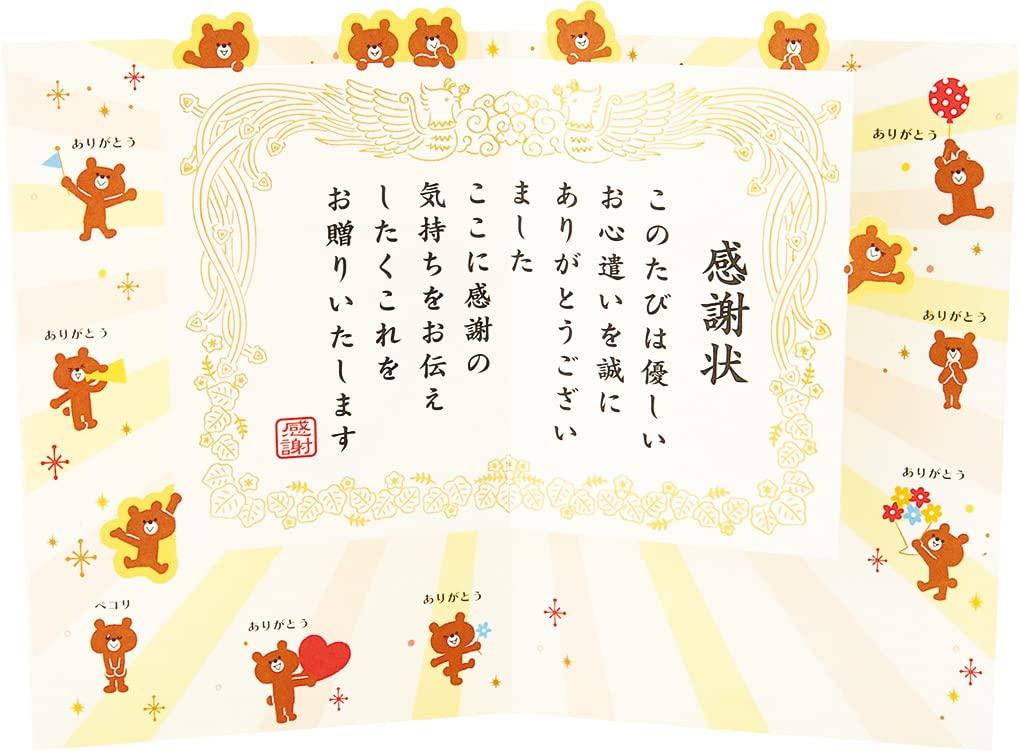 感謝状
このたびは優しい
お心遣いを誠に
ありがとうござい
ました
ここに感謝の
気持ちをお伝え
したくこれを
お贈りいたします
感謝
ありがとう
ありがとう
ありがとう
ありがとう
ありがとう
ペコリ
ありがとう
ありがとう